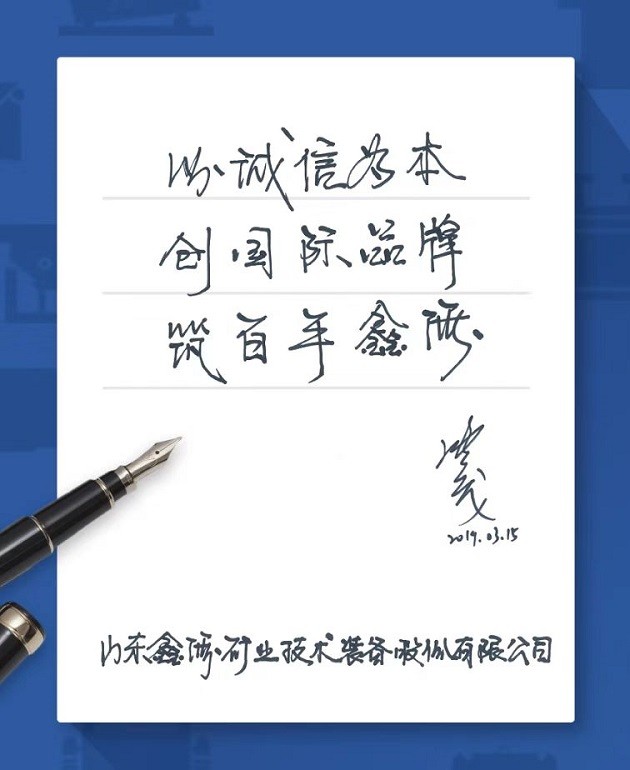 以诚信为本
创国际品牌
筑百年鑫海
2019.03.15
山东鑫海矿业技术装备股份有限公司